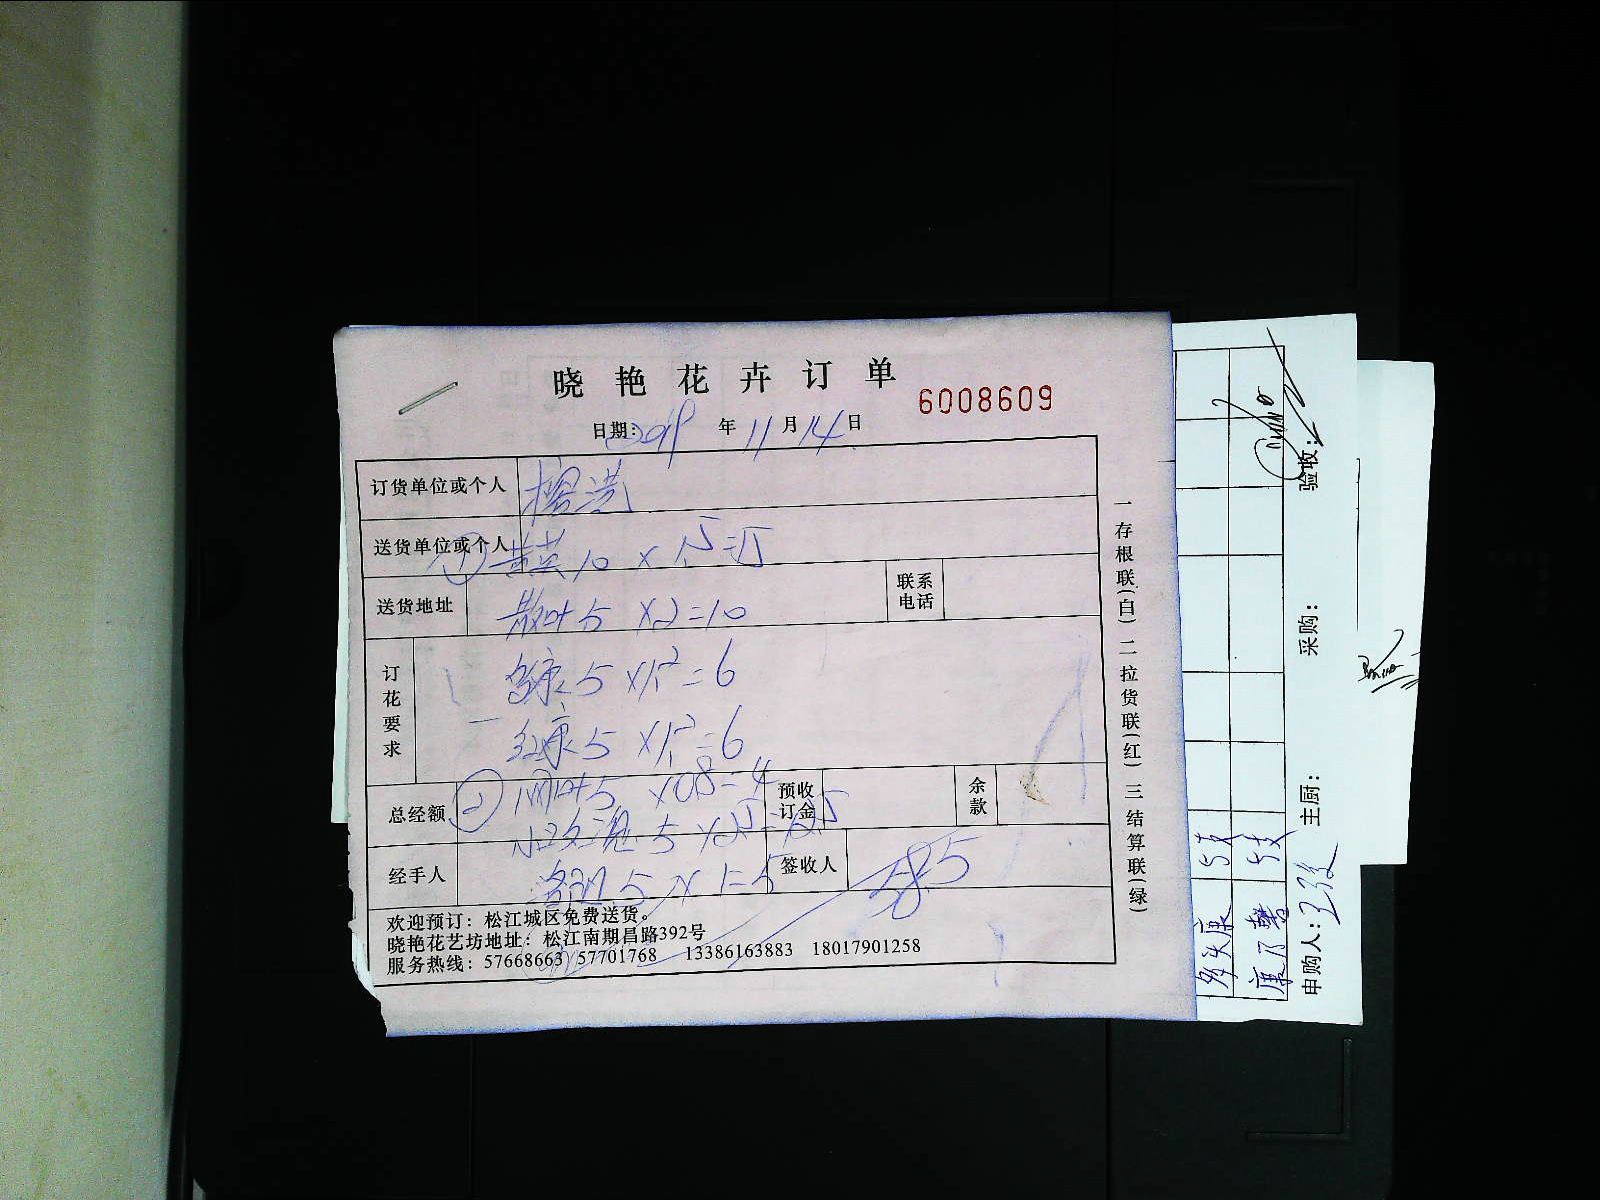 晓艳花卉订单
6008609
日期: 2019 年 11 月 14 日
订货单位或个人
送货单位或个人
① 黄英 10 × 1.5 = 15
送货地址
联系电话
散叶 5 × 2 = 10
订花要求
5 × 1.2 = 6
红康 5 × 1.2 = 6
总经额
预收订金
余款
② 5 × 0.8 = 4
5 × 2.5 = 12.5
经手人
签收人
5 × 1 = 5
58.5
欢迎预订：松江城区免费送货。
晓艳花艺坊地址：松江南期昌路392号
服务热线：57668663 57701768 13386163883 18017901258
一存根联(白) 二拉货联(红) 三结算联(绿)
5支
康乃馨 5支
申购人:
主厨:
采购:
验收: